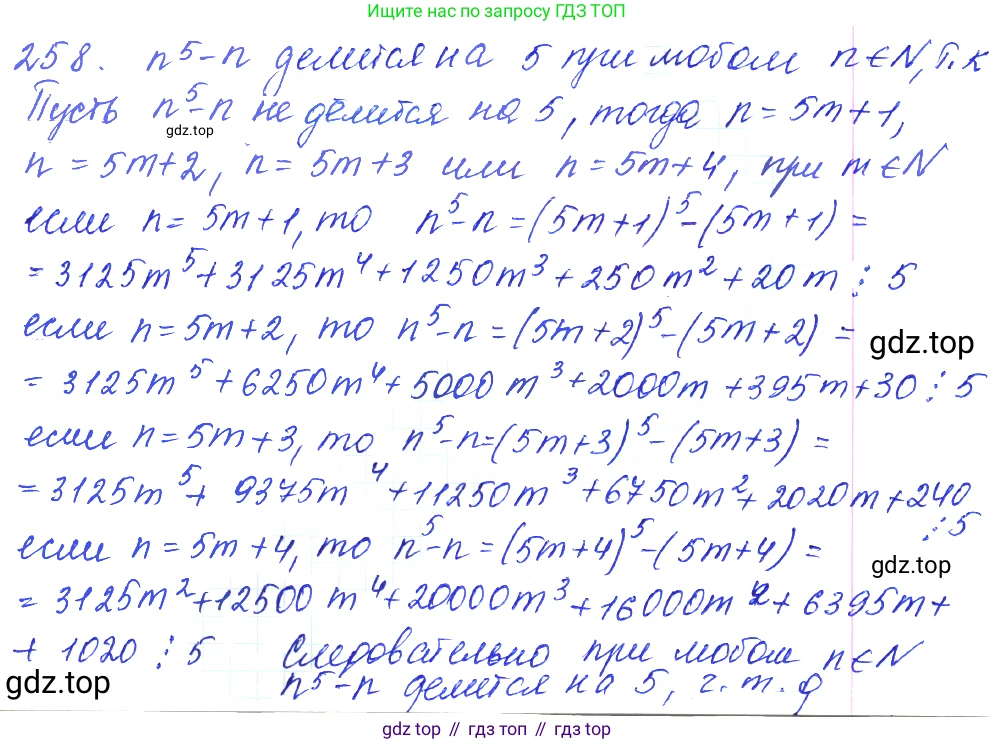 Ищите нас по запросу ГДЗ ТОП
258. n⁵-n делится на 5 при любом n∈N, т.к
Пусть n⁵-n не делится на 5, тогда n=5m+1,
gdz.top
n=5m+2, n=5m+3 или n=5m+4, при m∈N
если n=5m+1, то n⁵-n=(5m+1)⁵-(5m+1)=
=3125m⁵+3125m⁴+1250m³+250m²+20m ⋮ 5
если n=5m+2, то n⁵-n=(5m+2)⁵-(5m+2)=
gdz.top
=3125m⁵+6250m⁴+5000m³+2000m+395m+30 ⋮ 5
если n=5m+3, то n⁵-n=(5m+3)⁵-(5m+3)=
=3125m⁵+9375m⁴+11250m³+6750m²+2020m+240
⋮ 5
если n=5m+4, то n⁵-n=(5m+4)⁵-(5m+4)=
gdz.top
=3125m²+12500m⁴+20000m³+16000m²+6395m+
+1020 ⋮ 5 Следовательно при любом n∈N
gdz.top
n⁵-n делится на 5, ч.т.д
gdz.top // гдз топ // gdz.top